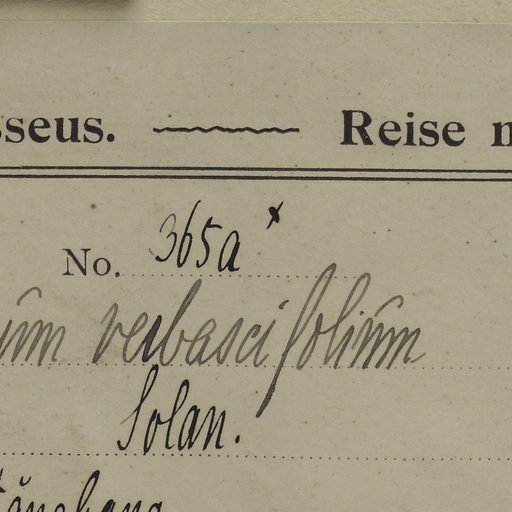 sseus. Reise
No. 365a x
um verbascifolium
Solan.